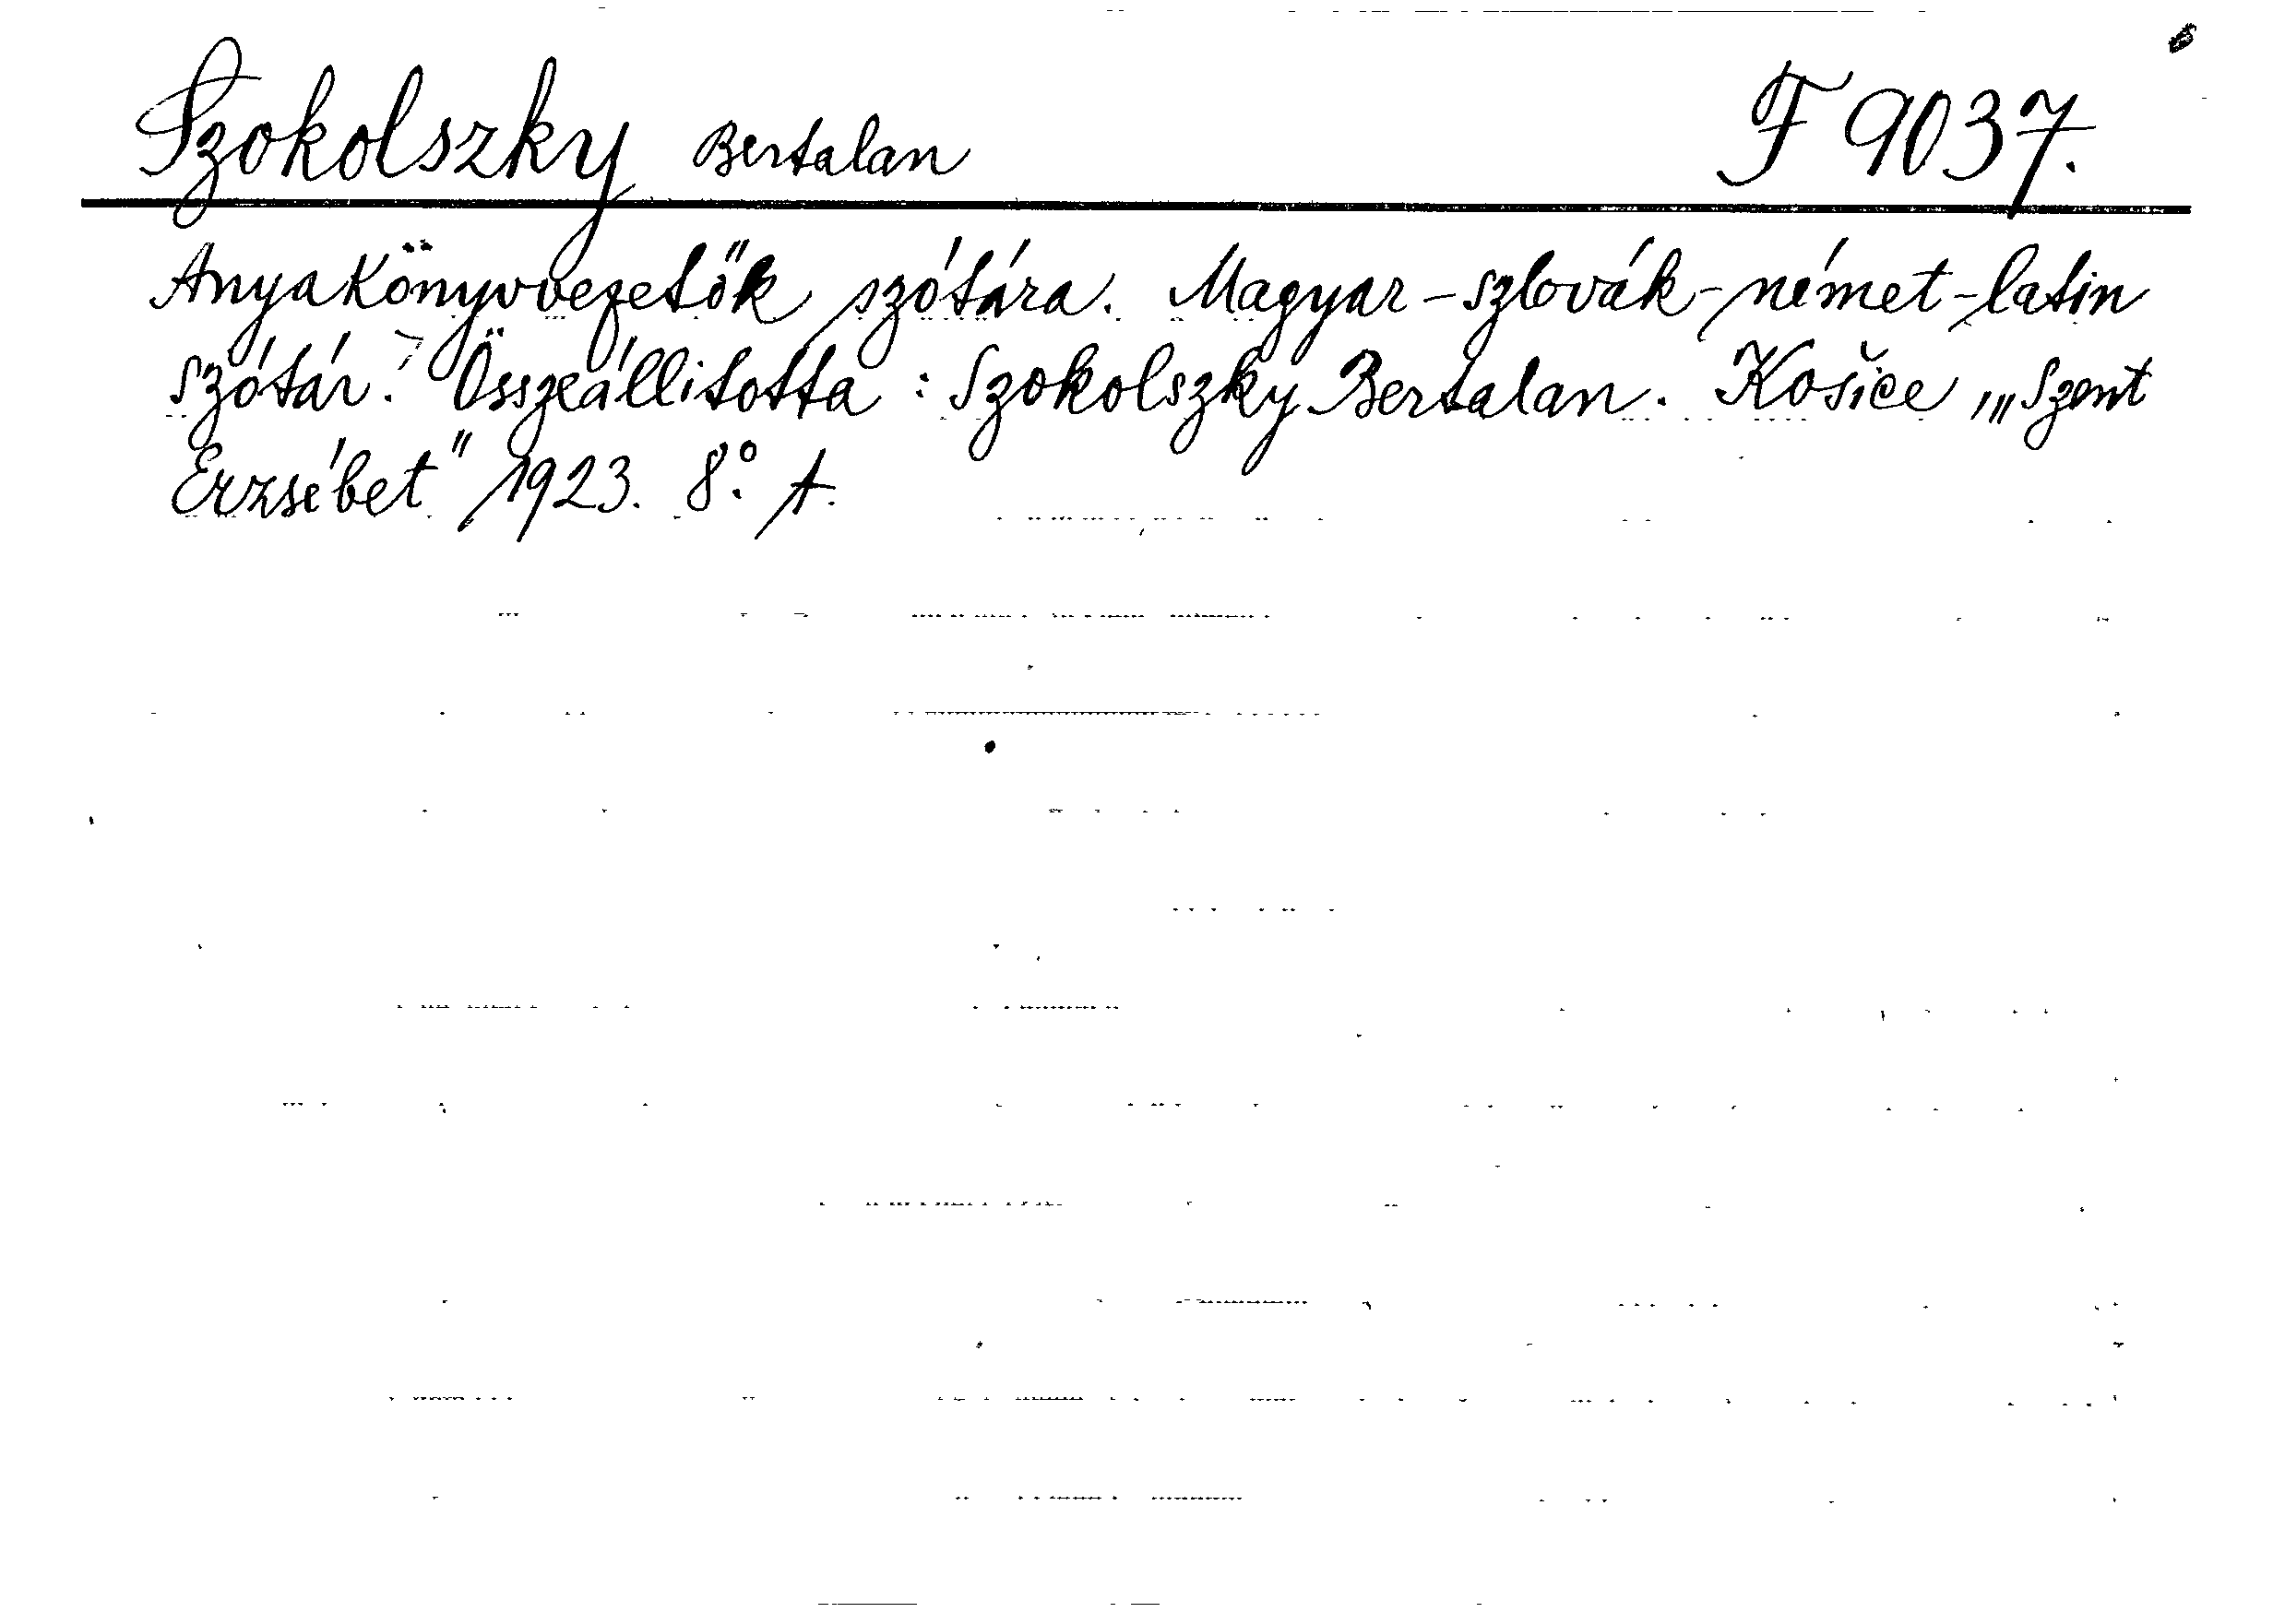 Szokolszky Bertalan F 9037.
Anyakönyvvezetők szótára. Magyar-szlovák-német-latin
szótár. Összeállitotta: Szokolszky Bertalan. Košice, „Szent
Erzsébet" 1923. 8°.